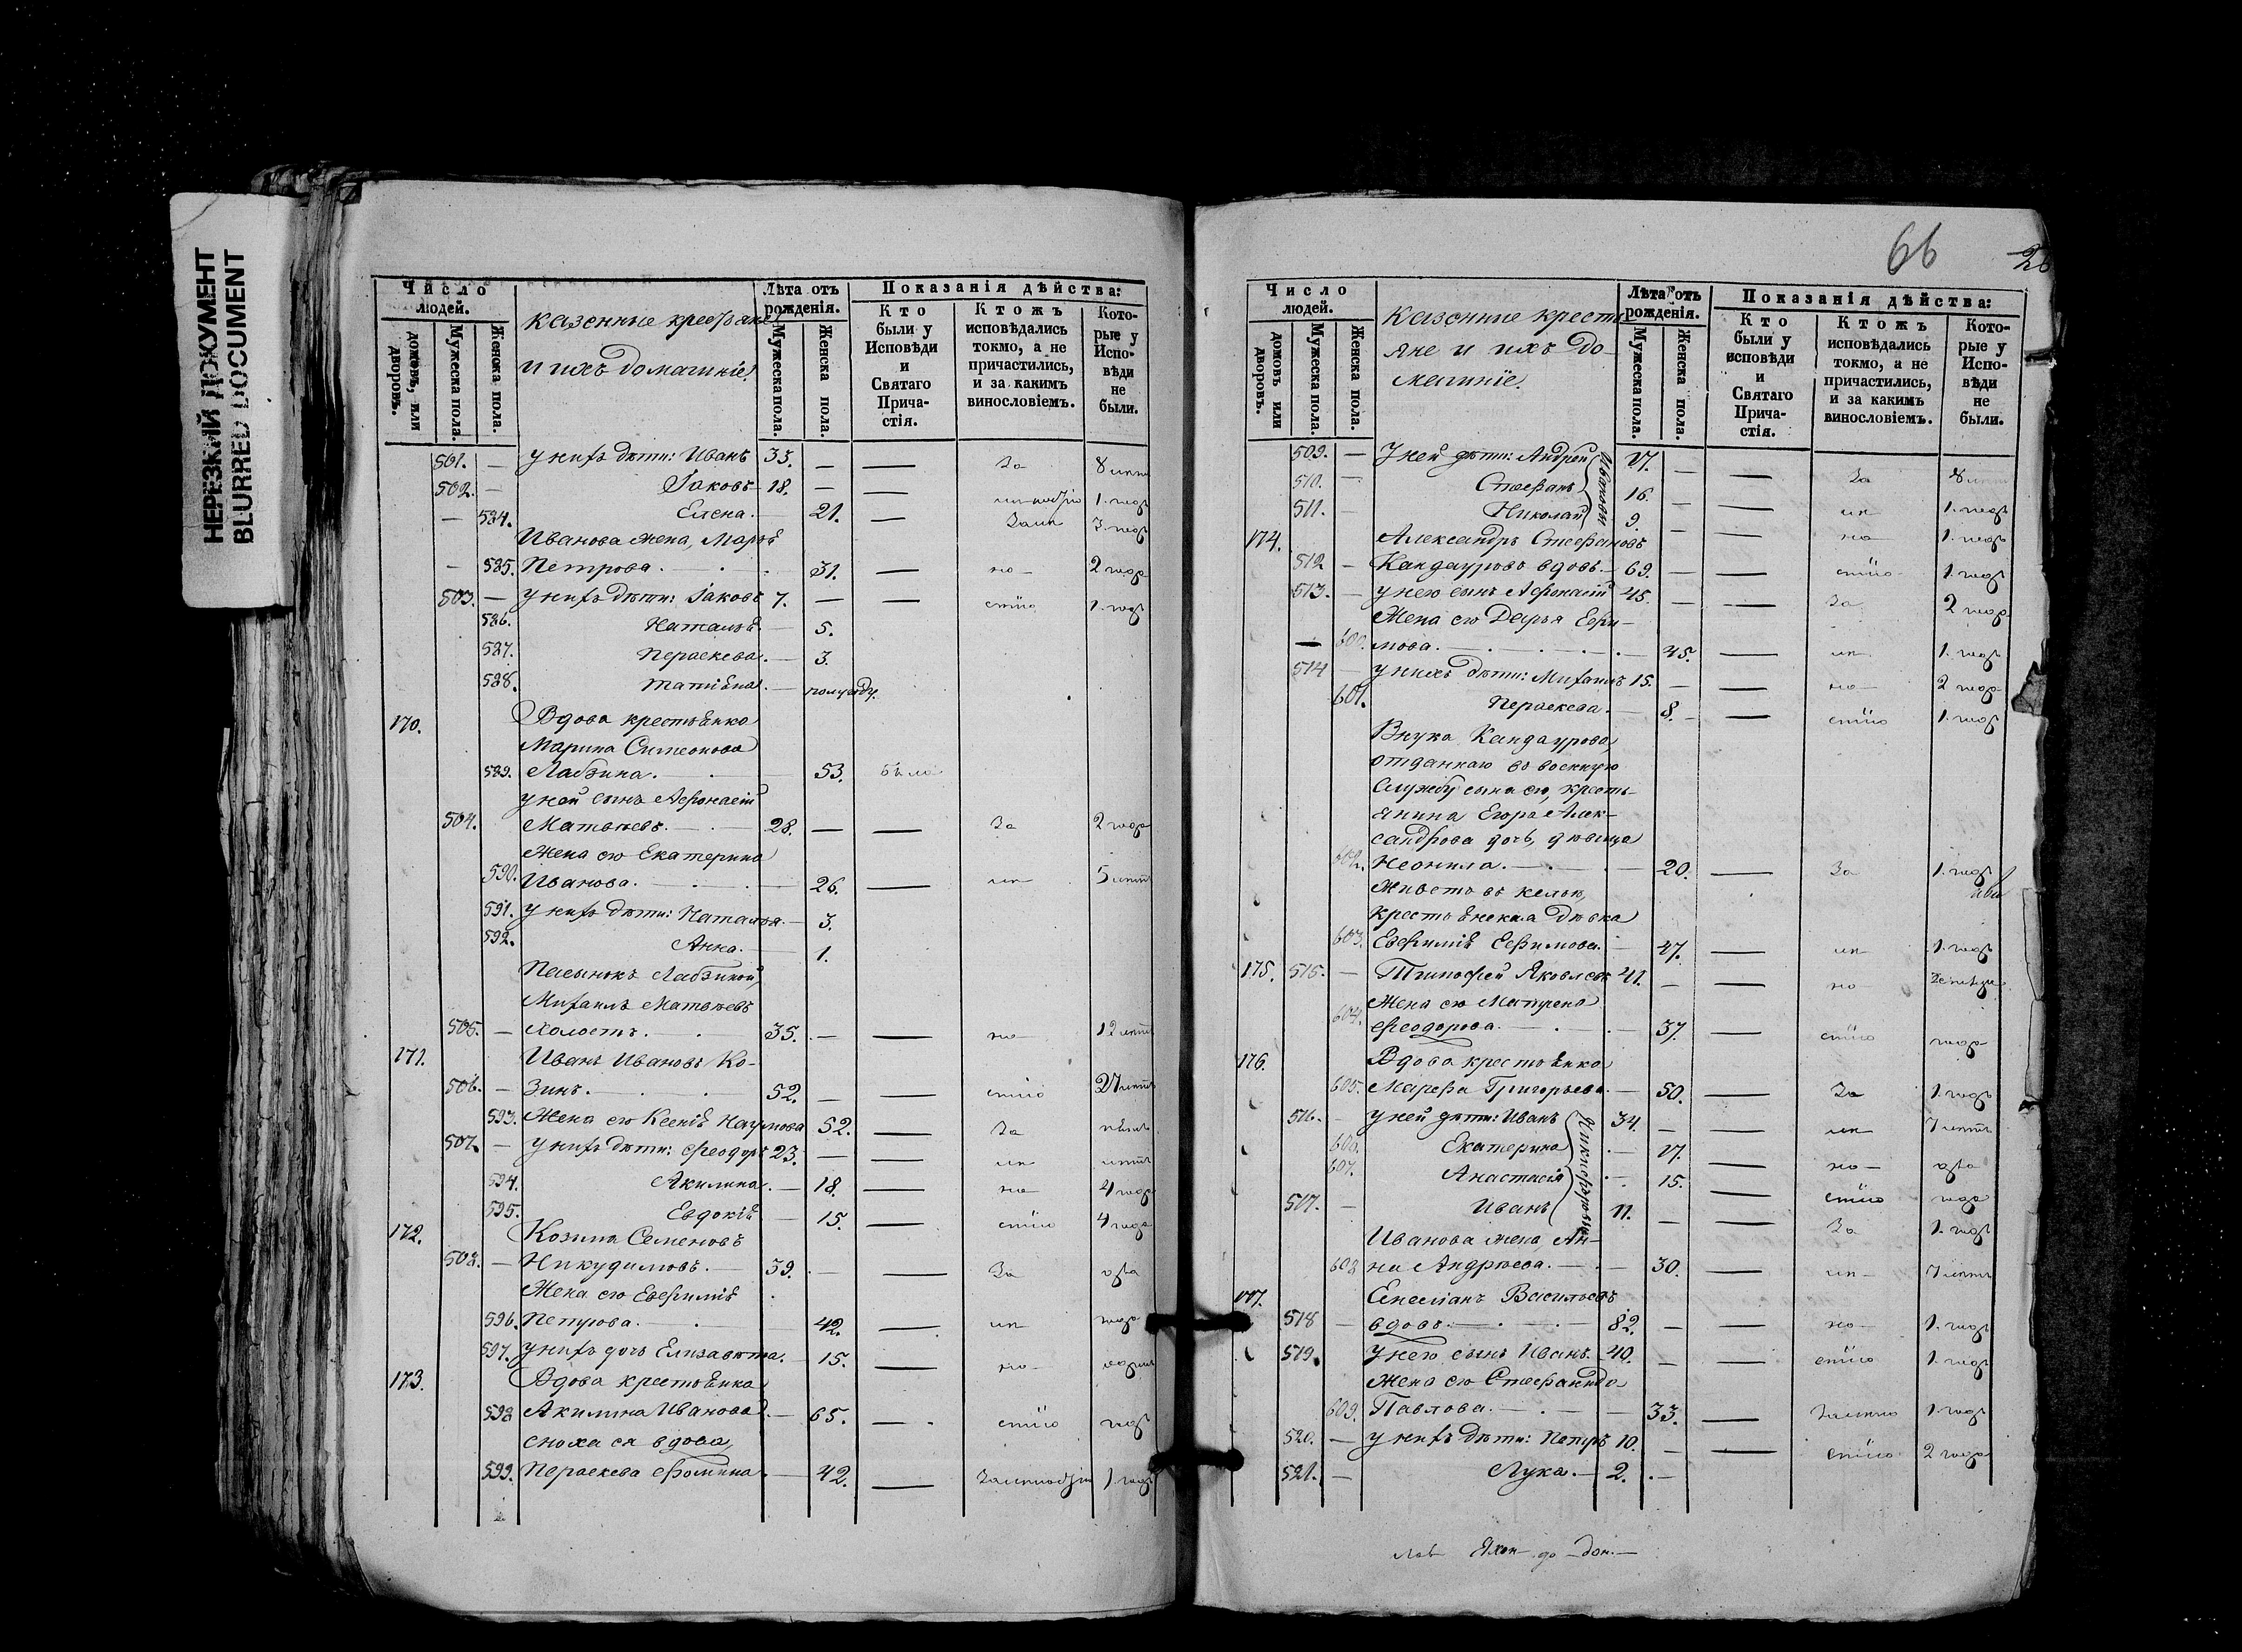 НЕРЕЗКИЙ ДОКУМЕНТ
BLURRED DOCUMENT
Число людей.
домовъ, или дворовъ.
Мужеска пола.
Женска пола.
казенные крестьяне
и ихъ домашніе.
Лѣта отъ рожденія.
Мужеска пола.
Женска пола.
Показанія дѣйства:
Кто были у Исповѣди и Святаго Причастія.
Ктожъ исповѣдались токмо, а не причастились, и за какимъ винословіемъ.
Которые у Исповѣди не были.
501. — у нихъ дѣти: Иванъ 33. — — За 8 лѣтъ
502. — Іаковъ 18. — — 1. годъ
— 584. Елена. — 21. — 3. год
Иванова жена, Марья
— 585. Петрова. 31. — но 2 года
503. — у нихъ дѣти: Іаковъ 7. — — стію 1. годъ
586. Наталья. — 5.
587. Параскева. — 3.
588. Татіяна. — полгоду.
170. Вдова крестьянка
Марина Симеонова
589. Лабзина. — 53. была
у ней сынъ Афонасій
504. Матвѣевъ. 28. — — За 2 года
Жена его Екатерина
590. Иванова. — 26. — ли 5 лѣтъ
591. у нихъ дѣти: Наталья. — 3.
592. Анна. — 1.
Пасынокъ Лабзиной,
Михаилъ Матвѣевъ
505. — холостъ. 35. — — но 12 лѣтъ
171. Иванъ Ивановъ Ко-
506. — зинъ. 52. — — стію 27 лѣтъ
593. Жена его Ксенія Наумова 52. — За
507. — у нихъ дѣти: Феодоръ 23. — — ли лѣтъ
594. Акилина. — 18. — но 4 года
595. Евдокія — 15. — стію 4 года
172. Козьма Семеновъ
508. — Никудимовъ. — 39. — — За два
Жена его Евфимія
596. Петрова. 42. — ли года
597. у нихъ дочь Елизавета. — 15. — но
173. Вдова крестьянка
598 Акилина Иванова. — 65. — стію годъ
сноха ея вдова,
599. Параскева Фомина. — 42. — 1 годъ
66
26
Число людей.
домовъ или дворовъ.
Мужеска пола.
Женска пола.
Казенные кресть-
яне и ихъ до-
машніе.
Лѣта отъ рожденія.
Мужеска пола.
Женска пола.
Показанія дѣйства:
Кто были у исповѣди и Святаго Причастія.
Ктожъ исповѣдались токмо, а не причастились, и за какимъ винословіемъ.
Которые у Исповѣди не были.
509. — У ней дѣти: Андрей 17. — — За 8 лѣтъ
510. — Стефанъ 16. — — ли 1. годъ
511. — Николай 9. — — но 1. годъ
Ивановы
174. Александръ Стефановъ
512 — Кандауровъ вдовъ. — 69. — — стію 1. годъ
513. — у него сынъ Афонасій 45. — — За 2 года
Жена его Дарья Ефи-
— 600. мова. — 45. — ли 1. годъ
514 — у нихъ дѣти: Михаилъ 15. — — но 2 года
601. Параскева. — 8. — — стію 1. годъ
Внука Кандаурова,
отданнаго въ военную
службу сына его, кресть-
янина Егора Алек-
сандрова дочь, дѣвица
602. Неонила. — 20. — За 1. годъ
Живетъ въ кельи,
крестьянская дѣвка
603. Евфимія Ефимова. — 47. — ли 1. годъ
175. 515. — Тимофей Яковлевъ 41. — — но
Жена его Матрена
604. Феодорова. — 37. — стію года
176. Вдова крестьянка
605. Марефа Григорьева. — 50. — За 1. годъ
516. — у ней дѣти: Иванъ 34. — — ли 7 лѣтъ
606. Екатерина — 17. — но два
607. Анастасія — 15. — стію года
517. — Иванъ 11. — — За 1. годъ
Никифоровы
Иванова жена Ан-
608 на Андрѣева. — 30. — ли 7 лѣтъ
177. Емеліанъ Васильевъ
518 — вдовъ. — 82. — — но 1. годъ
519. у него сынъ Иванъ. 40. — — стію 1. годъ
Жена его Стефанида
609. Павлова. — 33. — 1. годъ
520. — у нихъ дѣти: Петръ 10. — — стію 2 года
521. — Лука. — 2. —